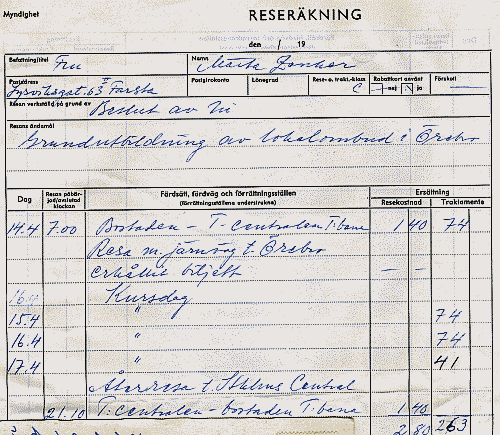 Myndighet
RESERÄKNING
den / 19
Befattning/titel Fru
Namn Märta Jonker
Postadress Fyrvaktsgat. 63 I Farsta
Postgirokonto
Lönegrad
Resv. o. trakt.-klass C
Rabattkort använt nej ja
Förskott
Resan verkställd på grund av Beslut av Ni
Resans ändamål
Grundutbildning av lokalombud i Örebro
Dag
Resan påbörjad/avslutad klockan
Färdsätt, färdväg och förrättningsställen
(förrättningsställena understrukna)
Ersättning
Resekostnad
Traktamente
14.4 7.00 Bostaden - T-centralen T-bana 1 40 74
Resa m. järnväg t. Örebro
erhållit biljett - -
16.4 Kursdag
15.4 " 74
16.4 " 74
17.4 " 41
Återresa t. Sthlms Central
21.10 T-centralen - bostaden T-bana 1.40
2.80 263